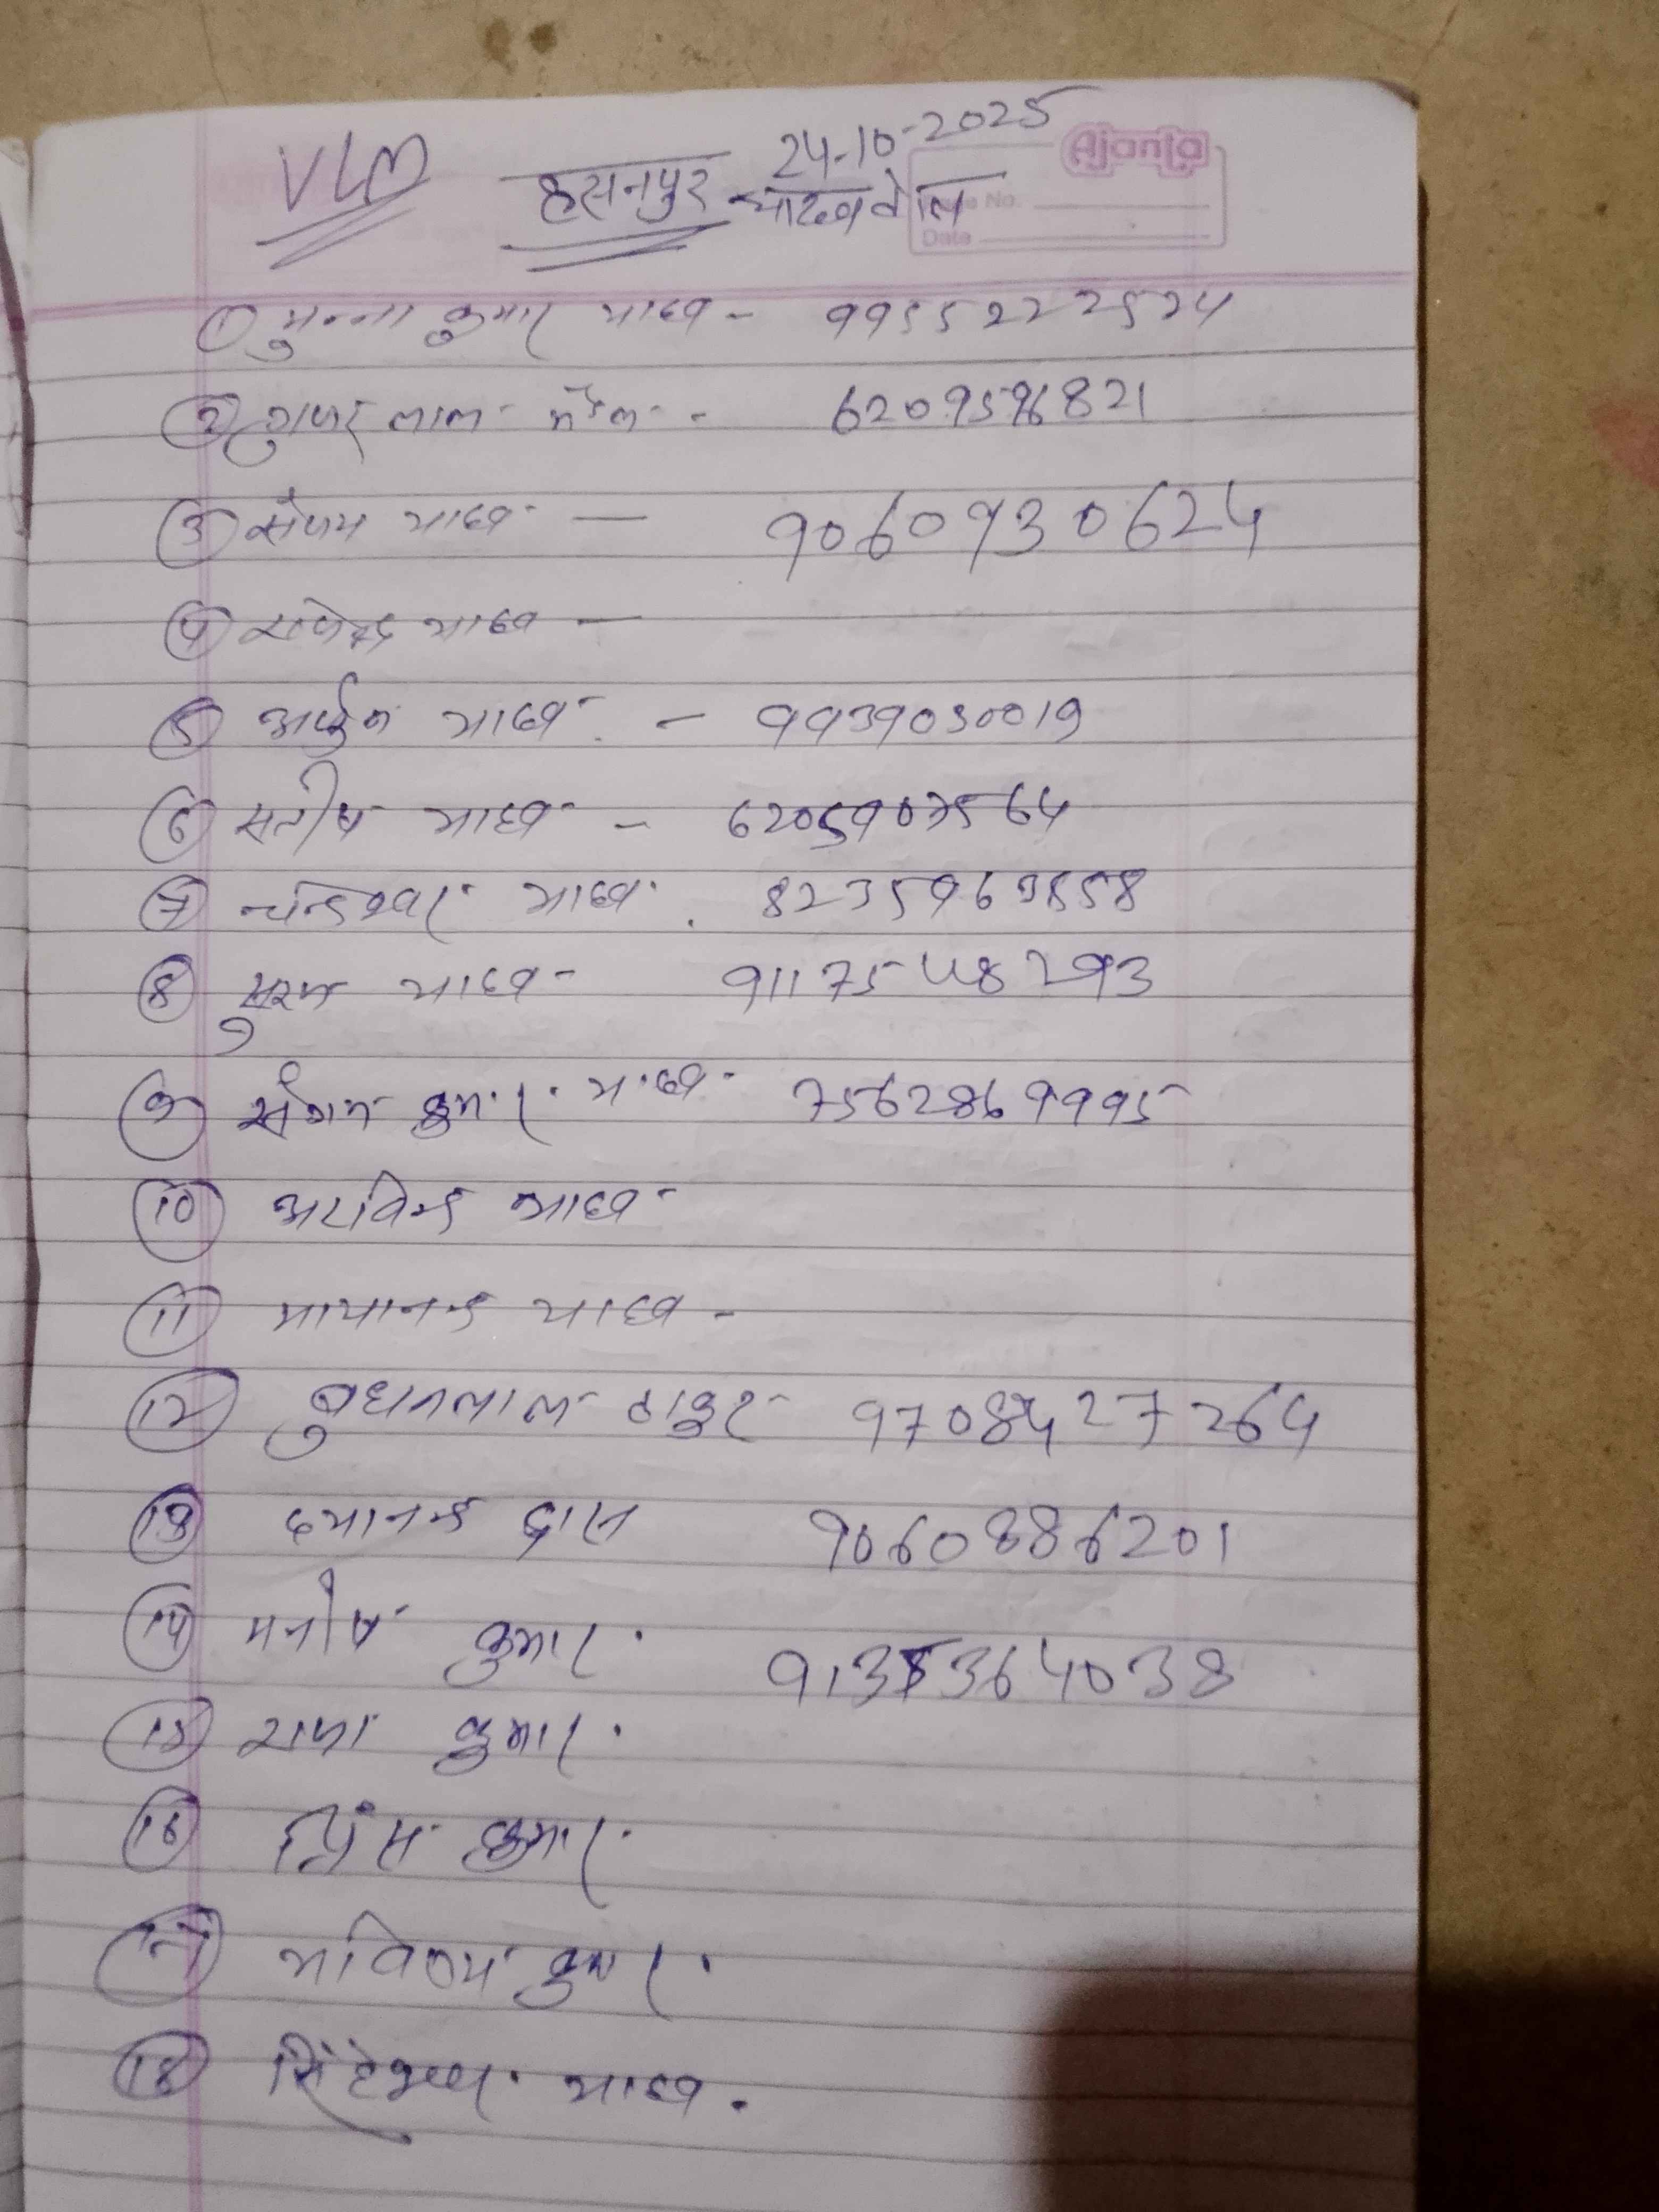 VLM हसनपुर 24-10-2025
यादव टोल
Ajanta
Page No.
Date
① मुन्ना कुमार यादव - 9955222524
② लाल मंडल - 6209596821
③ संजय यादव — 9060930624
④ यादव —
⑤ अर्जुन यादव - 9939030019
⑥ सतीष यादव -
⑦ चन्देश्वर यादव . 8235963858
⑧ यादव - 9117548293
⑨ संगम कुमार यादव - 7562869995
⑩ अरविन्द यादव -
⑪ मायानन्द यादव -
⑫ बुधनलाल ठाकुर - 9708427264
⑬ दयानन्द दास 9060886201
⑭ मनीष कुमार 9135364038
⑮ राजा कुमार
⑯ प्रिंस कुमार
⑰ भविष्य कुमार
⑱ यादव